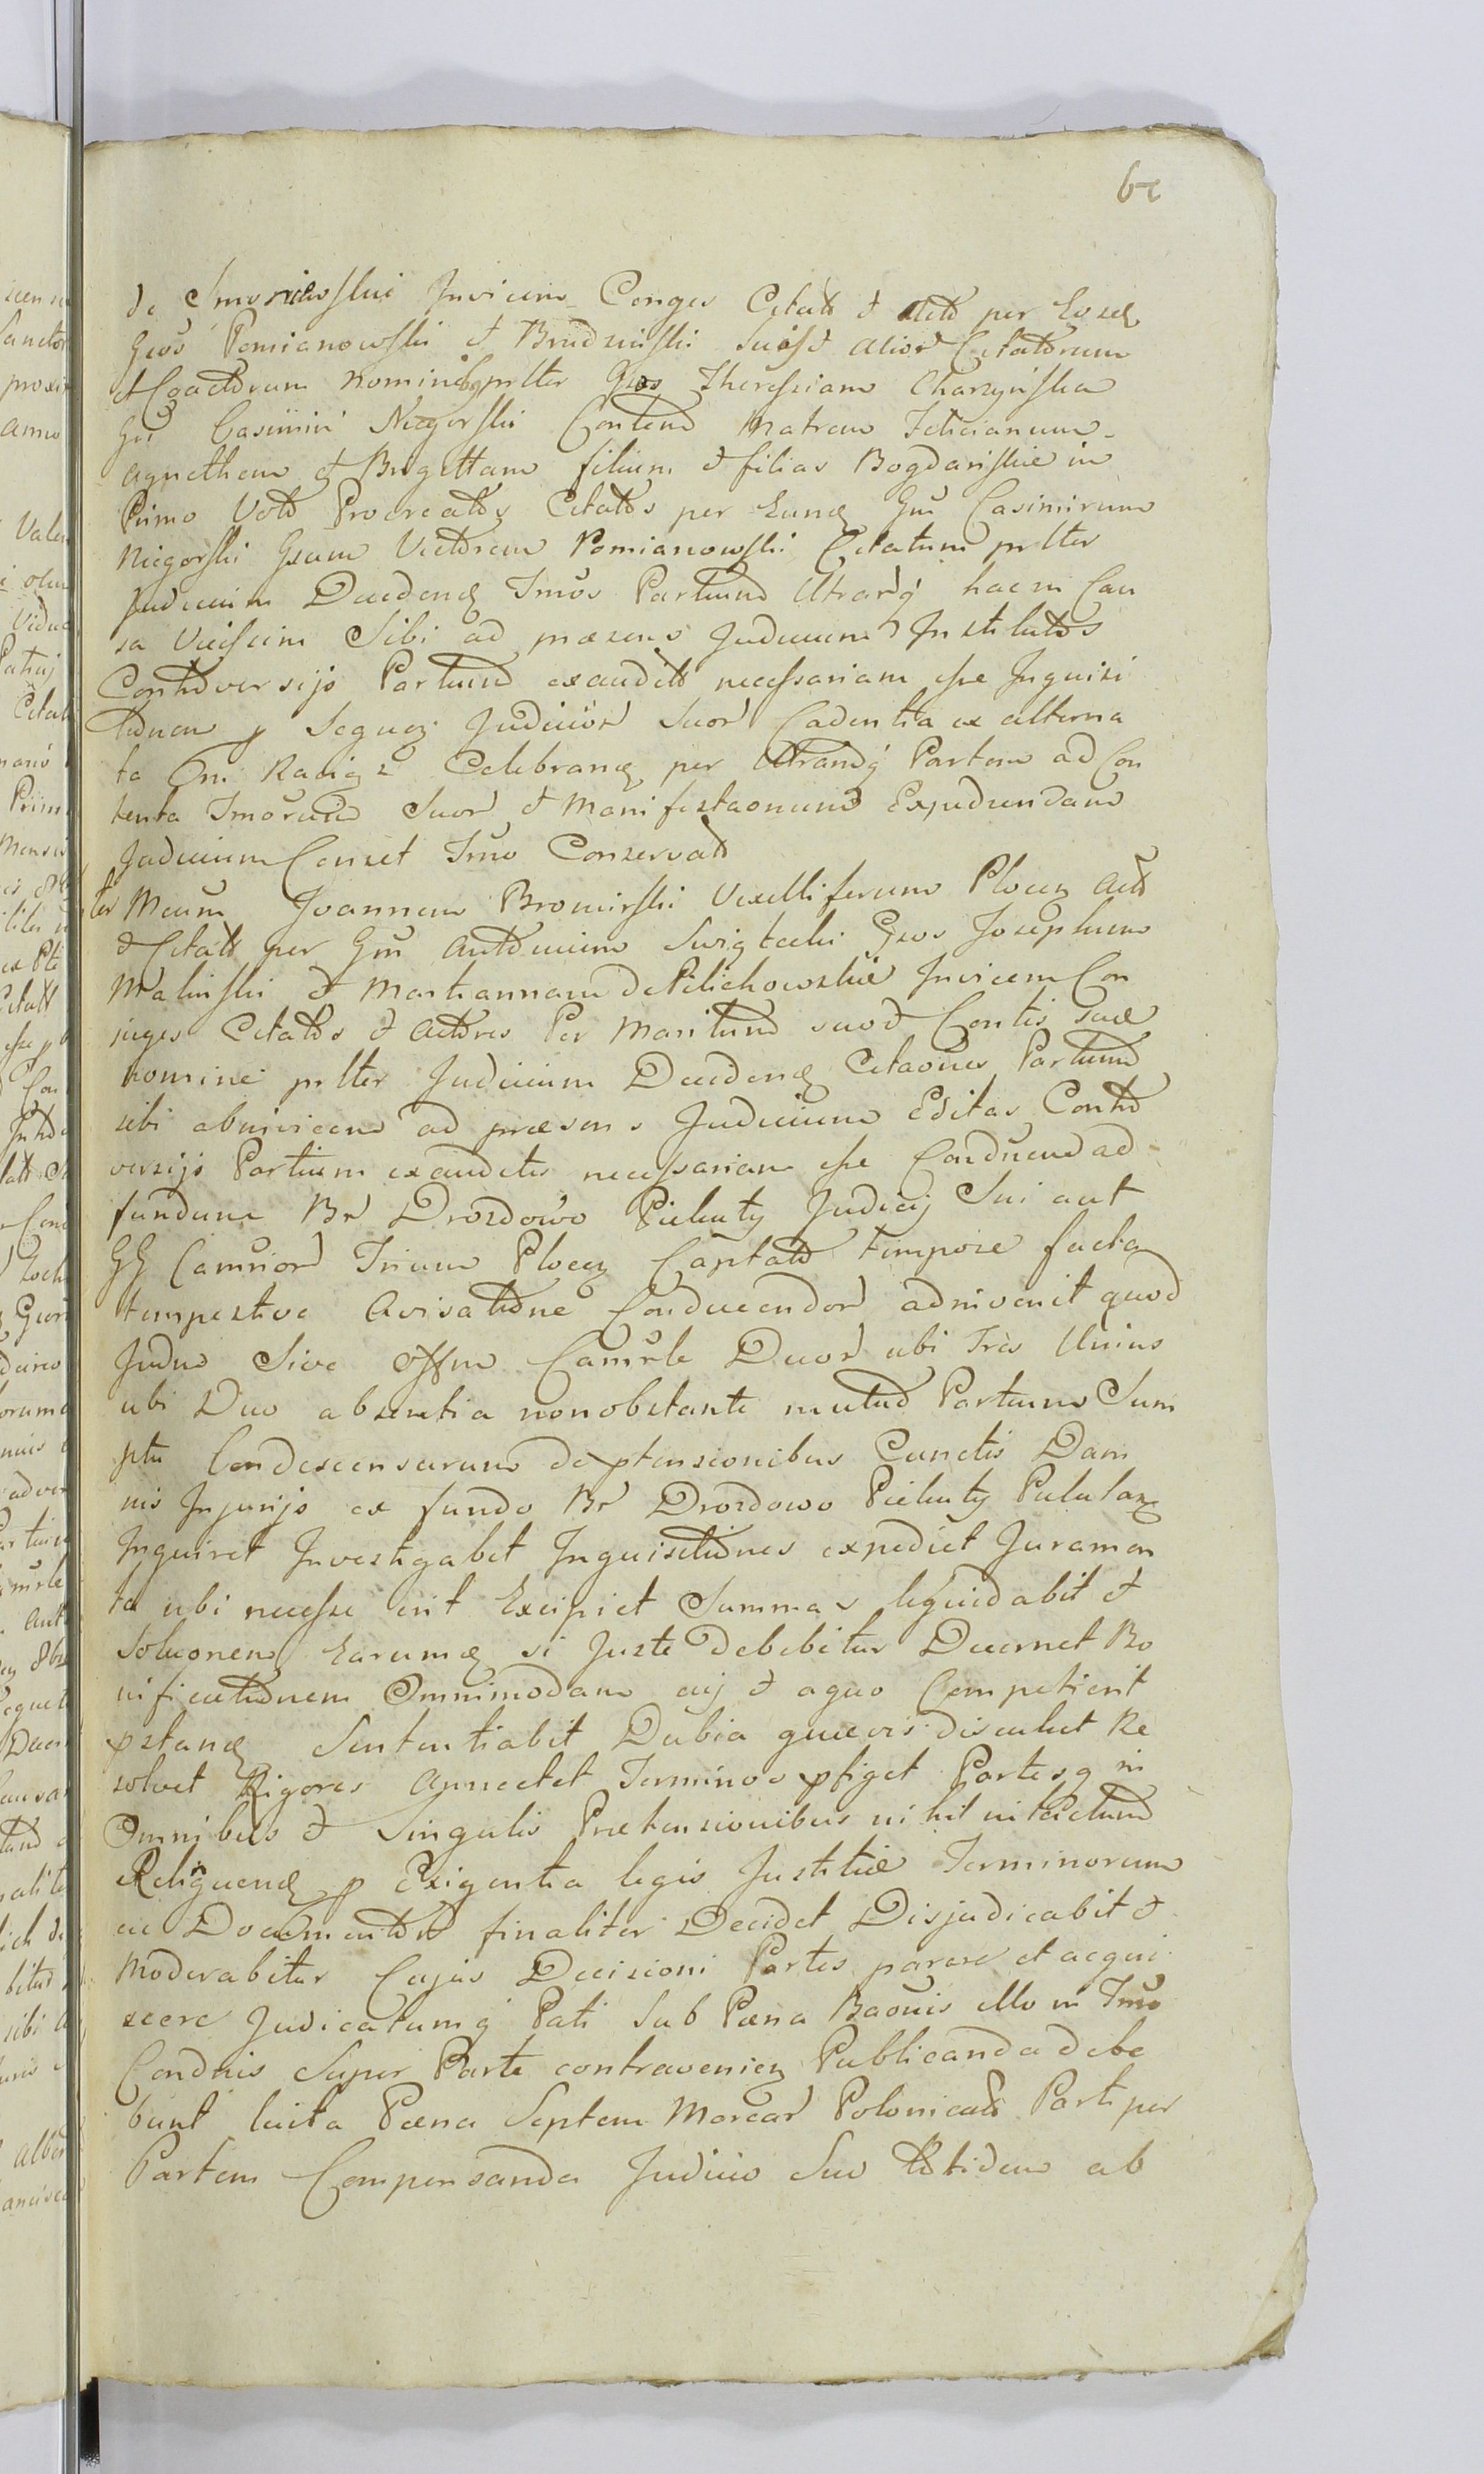 de Smoniewskie Invicem Conges Citatt et Actt per Eosd
Gsos Pomianowski et Brudzinski Suo et alior Citatorum
et Coactorum nominibq prltter Gsos Theressiam Charzynska
Gsi Casimiri Niegorski Contem Matrem Felicianum
Agnethem et Brigittam filium et filias Bogdanskie in
Primo Voto Procreatos Citatos per Eund Gm Casimirum
Niegorski Gsum Victorem Pomianowski Citatum prltter
Judicium Decidend Tmos Partium Utrarq hac in Cau
sa Vicissim Sibi ad præsens Judicium Institutos
Controversijs Partium exauditis necessariam esse Inquisi
tionem p Seque Judicior Suor Cadentia ex alterna
ta Radig Celebrand per Utramq Partem ad Con
tenta Tmorum Suor et Manifestaonum Expediendam
Judicium Censet Tmo Conservato
ter Meum Joannem Bromirski Vexilliferum Plocen Actt
et Citatt per Gm Antonium Swigtecki Gsos Josephum
Malinski et Mariannam de Pilichowskie Invicem Con
juges Citatos et Actores Per Maritum suo et Contis suæ
nomine prltter Judicium Decidend Citaones Partium
sibi abinvicem ad præsens Judicium Editas Contro
versijs Partium exauditis necessariam esse Condnem ad
fundum Br Drozdowo Piekuty Judicij Sui aut
GG Camrior Trium Plocen Captato tempore facta
tempestive Avisatione Conducendor adinvenit quod
Judm Sive Offm Camrle Duor ubi Tres Unius
ubi Duo absentia non obstante mutuo Partium Sum
ptu Condescensurum de ptensionibus Cunctis Dam
nis Injurijs ex fundo Br Drozdowo Piekuty Pululan
Inquiret Investigabit Inquisitiones expediet Juramen
ta ubi necesse erit Excipiet Summas liquidabit et
Soluonem Earumd si Juste Debebitur Decernet Bo
nificationem Omnimodam cuj et a quo Competierit
pstand Sententiabit Dubia quævis discutiet Re
solvet Rigores Annectet Terminos pfiget Partesq in
Omnibus et Singulis Prætensionibus nihil intactum
Relinquend p Exigentia legis Justitiæ Terminorum
ac Documentor finaliter Decidet Disjudicabit et
Moderabitur Cujus Decisioni Partes parere et acqui
scere Judicatumq Pati Sub Pæna Baonis illo in Tmo
Condnis Super Parte contravenien Publicanda debe
bunt luita Pæna Septem Marcar Polonicalt Parti per
Partem Compensanda Judicio Suo totidem ab